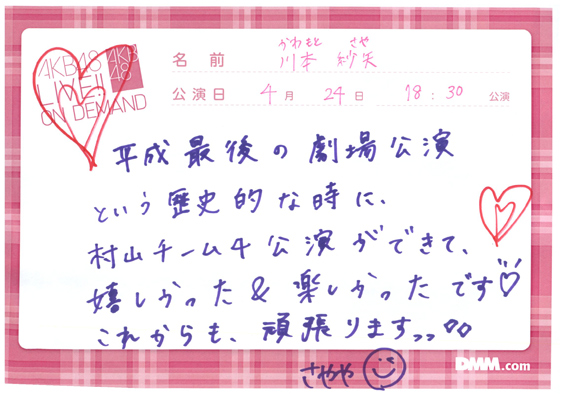 AKB48
LIVE!!
ON DEMAND
AKB
48
かわもと さや
名前 川本 紗矢
公演日 4月 24日 18:30 公演
平成最後の劇場公演
という歴史的な時に、
村山チーム4公演ができて、
嬉しかった&楽しかったです♡
これからも、頑張ります
さやや
DMM.com